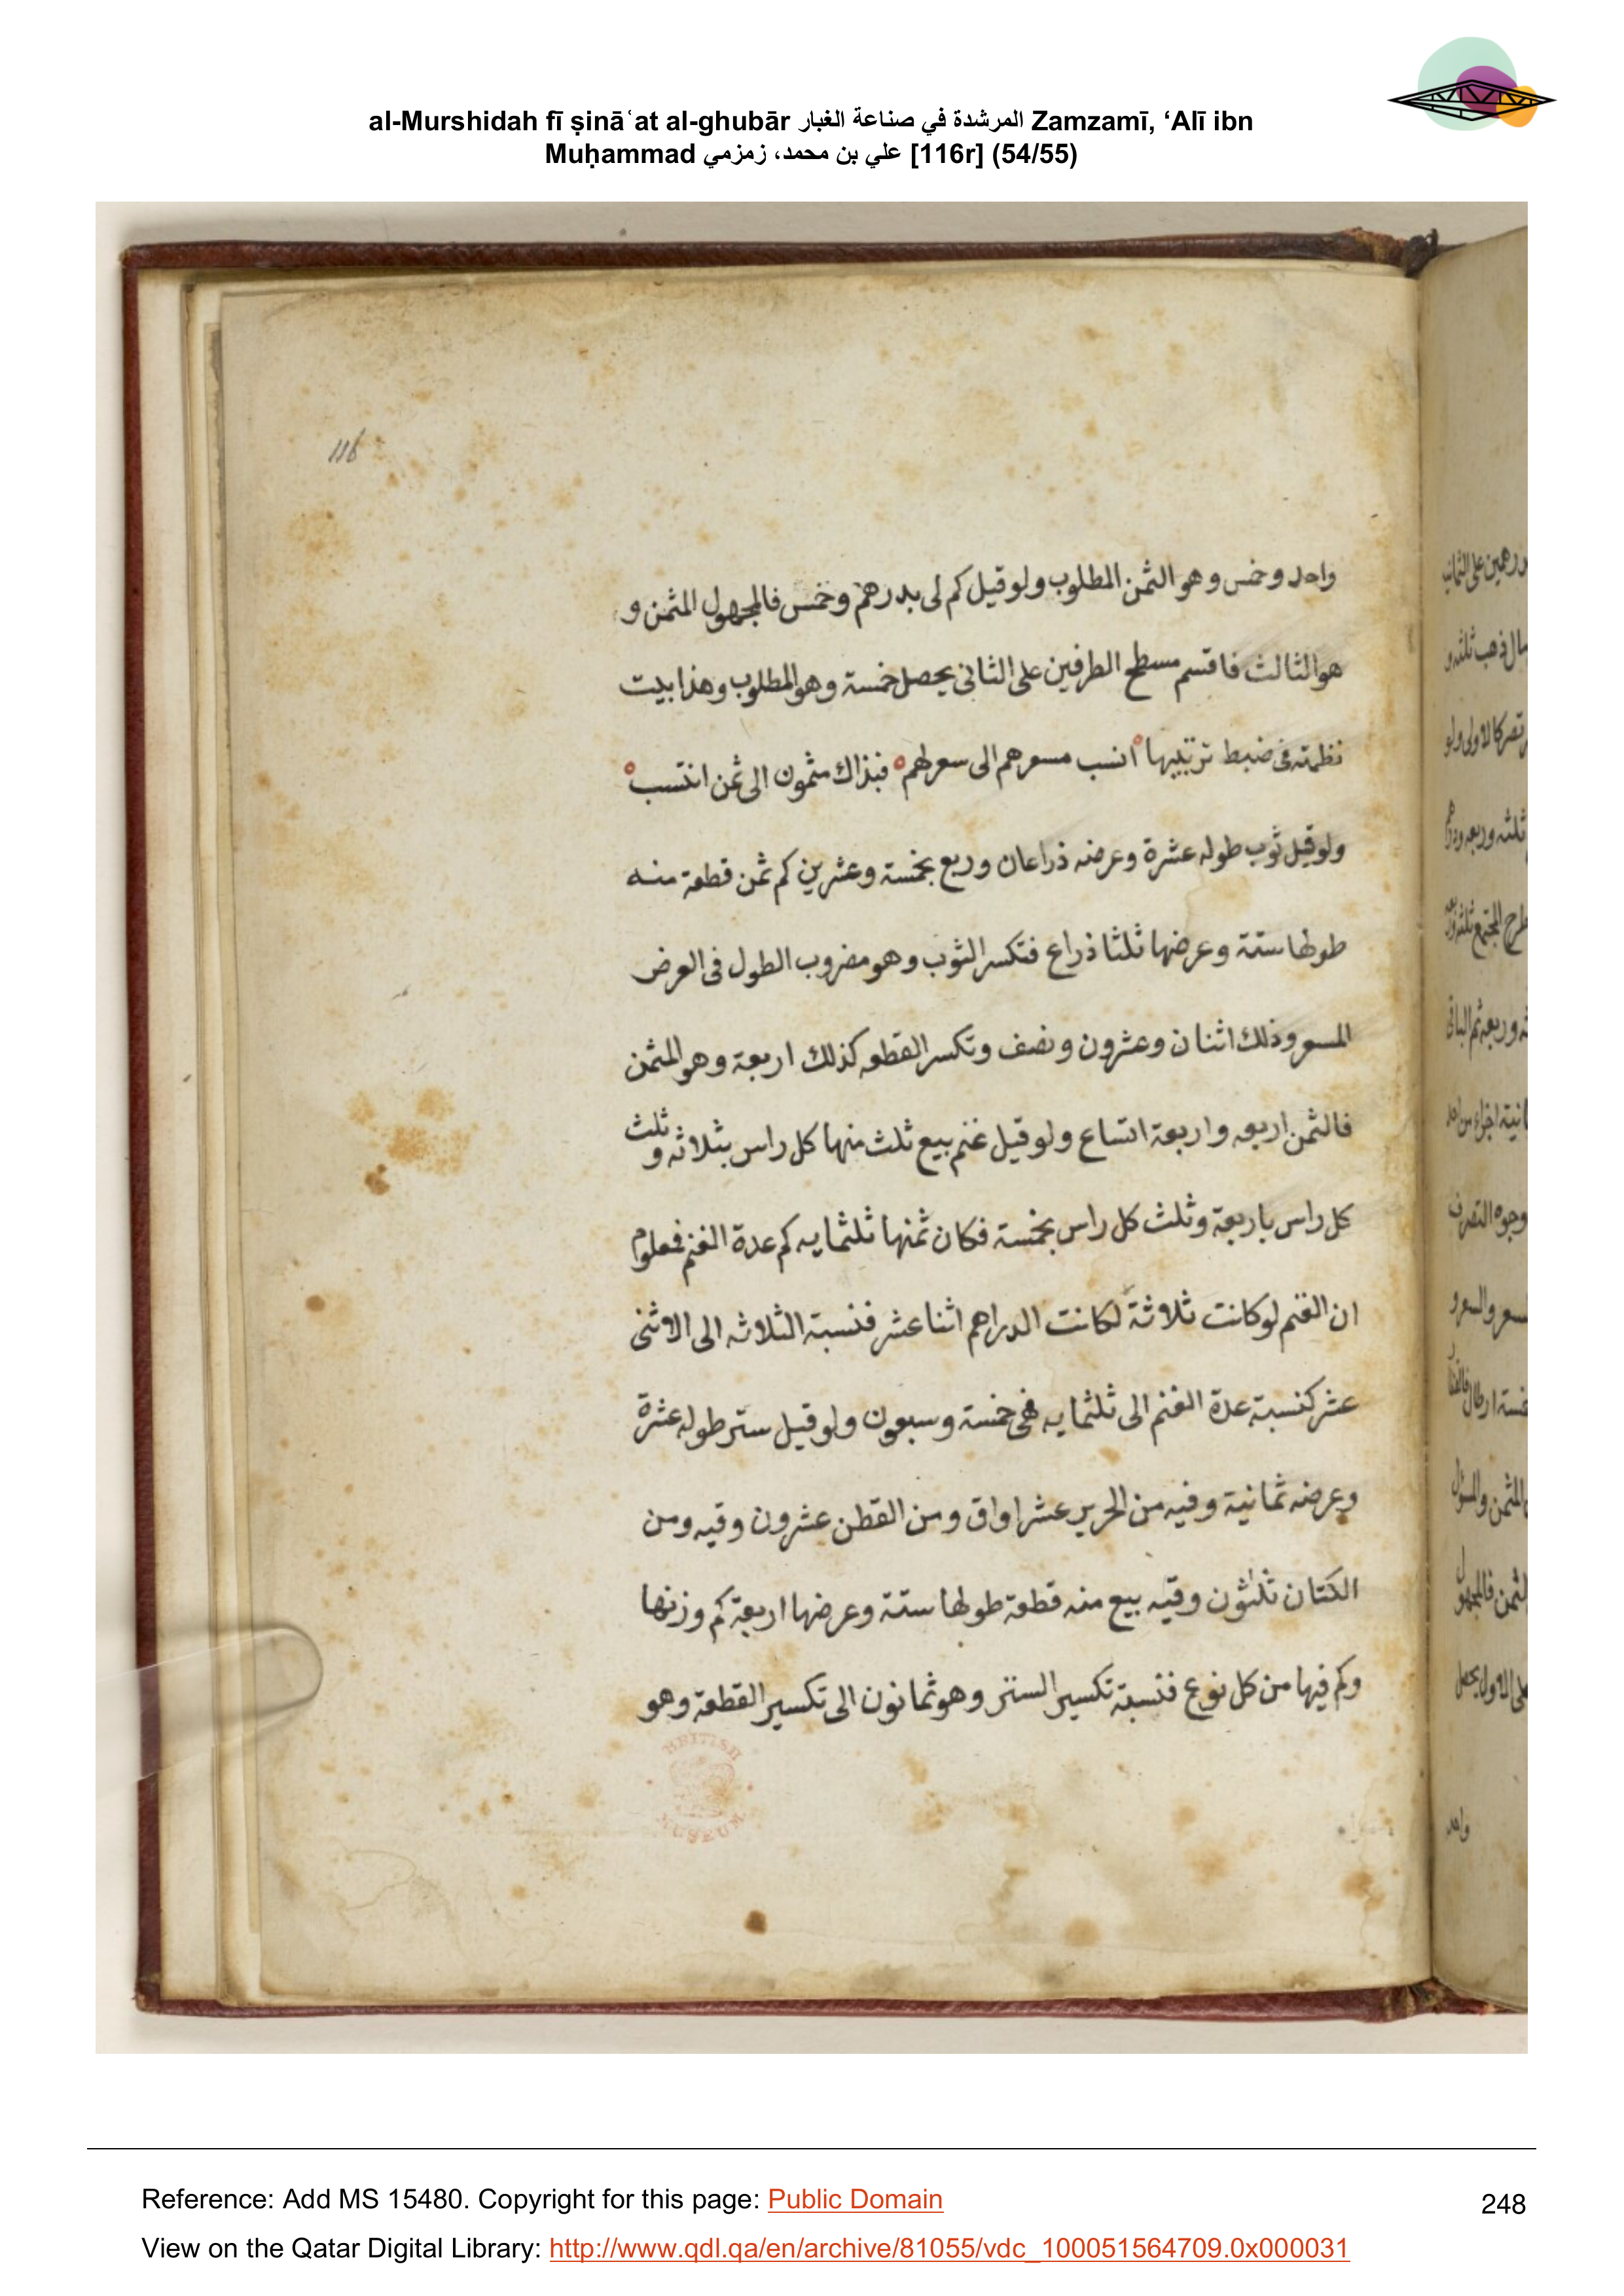 al-Murshidah fī ṣinā‘at al-ghubār المرشدة في صناعة الغبار Zamzamī, ‘Alī ibn
Muḥammad علي بن محمد، زمزمي [116r] (54/55)
116
واحد وخمس وهو الثمن المطلوب ولو قيل كم لى بدرهم وخمس فالمجهول المثمن و
هو الثالث فاقسم مسطح الطرفين على الثانى يحصل خمسة وهو المطلوب وهذا بيت
نظمته فى ضبط ترتيبها انسب مسعرهم الى سعرلهم فبذاك مثمون الى ثمن انتسب
ولو قيل ثوب طوله عشرة وعرضه ذراعان وربع بخمسة وعشرين كم ثمن قطعة منه
طولها ستة وعرضها ثلثا ذراع فتكسر الثوب وهو مضروب الطول فى العرض
المسعر وذلك اثنان وعشرون ونصف وتكسر القطعه كذلك اربعة وهو المثمن
فالثمن اربعه واربعة اتساع ولو قيل غنم بيع ثلث منها كل راس بثلاثه و ثلث
كل راس باربعة وثلث كل راس بخمسة فكان ثمنها ثلثمايه كم عدة الغنم فمعلوم
ان الغنم لو كانت ثلاثة لكانت الدراهم اثنا عشر فنسبة الثلاثه الى الاثنى
عشر كنسبة عدة الغنم الى ثلثمايه فهى خمسة وسبعون ولو قيل ستر طوله عشرة
وعرضه ثمانية وفيه من الحرير عشر اواق ومن القطن عشرون وقيه ومن
الكتان ثلثون وقيه بيع منه قطعة طولها ستة وعرضها اربعة كم وزنها
وكم فيها من كل نوع فنسبة تكسير الستر وهو ثمانون الى تكسير القطعة وهو
BRITISH
MUSEUM
واحد
Reference: Add MS 15480. Copyright for this page: Public Domain
248
View on the Qatar Digital Library: http://www.qdl.qa/en/archive/81055/vdc_100051564709.0x000031